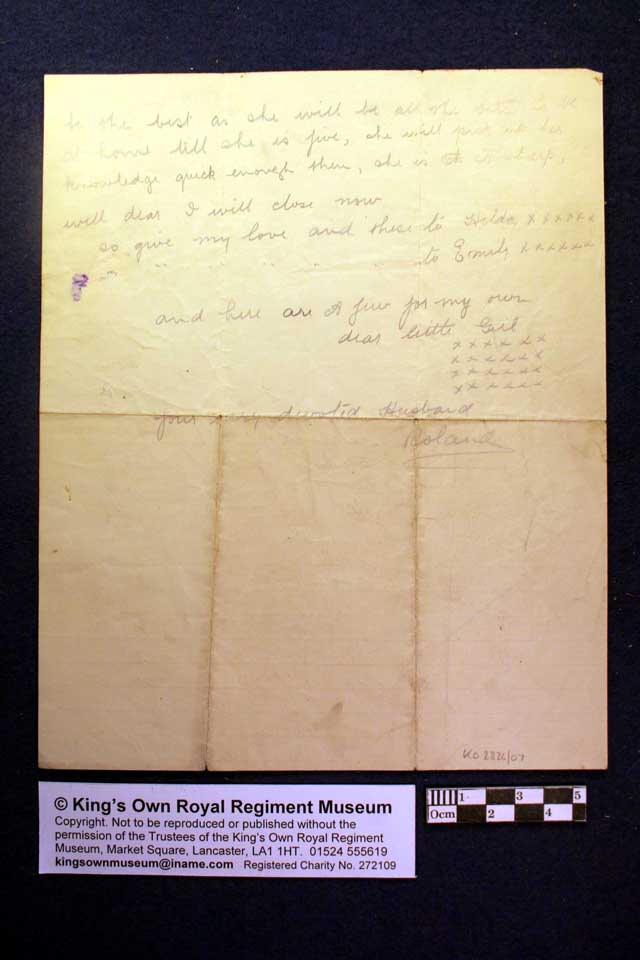 be the best as she will be all the better to be
at home till she is five, she will pick up her
knowledge quick enough then, she is so sharp,
well dear I will close now
so give my love and these to Hilda x x x x x x
" " " " " " " to Emily x x x x x x
and here are A few for my own
dear little Girl
x x x x x x
x x x x x x
x x x x x x
x x x x x x
your very devoted Husband
Roland
KO 2826/07
© King's Own Royal Regiment Museum
Copyright. Not to be reproduced or published without the
permission of the Trustees of the King's Own Royal Regiment
Museum, Market Square, Lancaster, LA1 1HT. 01524 555619
kingsownmuseum@iname.com Registered Charity No. 272109
0cm 1 2 3 4 5